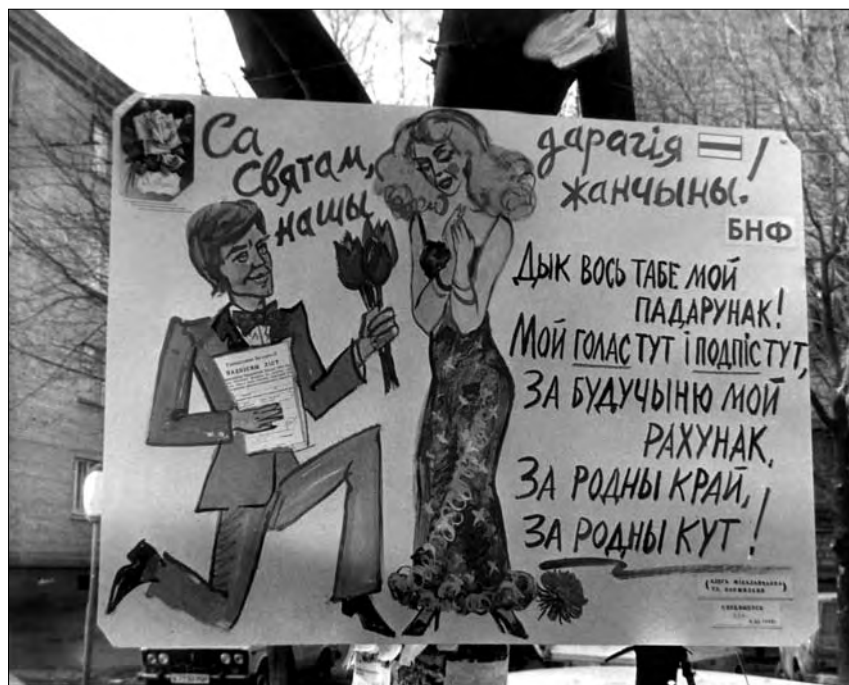 Са
Святам,
нашы
дарагія
жанчыны!
БНФ
Дык вось табе мой
падарунак!
Мой голас тут і подпіс тут,
За будучыню мой
рахунак,
За родны край,
За родны кут!
ПАДПІСНЫ ЛІСТ